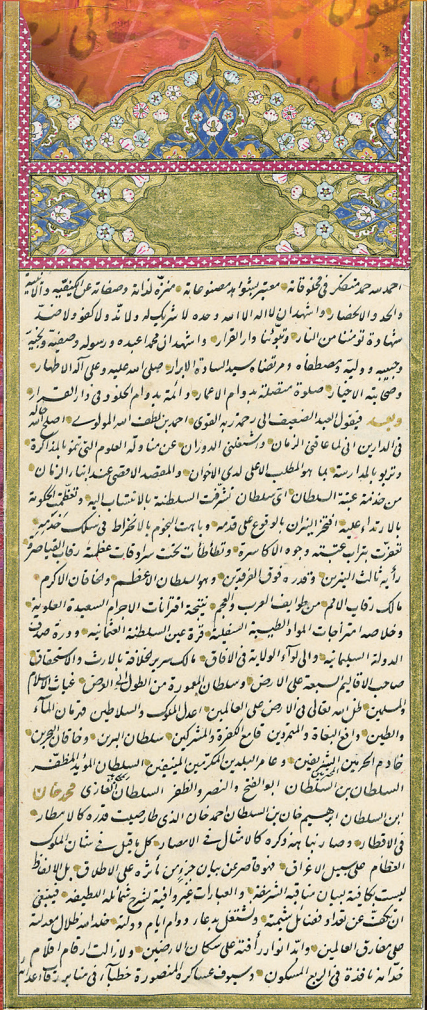 احمد لله حمد متفكر في مخلوقاته معتبر بشواهد مصنوعاته منزه لذاته وصفاته عن
والحد والانحصار واشهد ان لا اله الا الله وحده لا شريك له ولا ند ولا كفو ولا ضد
شهادة تؤمننا من النار وتبوئنا دار القرار واشهد ان محمدا عبده ورسوله وصفيه ونجيه
وحبيبه ووليه ومصطفاه ومرتضاه سيد السادة الابرار صلى الله عليه وعلى آله الاطهار
وصحابته الاخيار صلوة متصلة بدوام الاعمار دائمة بدوام الخلود في دار القرار
وبعد فيقول العبد الضعيف الى رحمة ربه القوي احمد بن لطف الله المولوي اصلح الله حاله
في الدارين اني لما عاقني الزمان واشغلني الدوران عن مناولة العلوم التي تنمو بالمذاكرة
وتربو بالمدارسة بما هو المطلب الاعلى لدى الاخوان والمقصد الاقصى عند ابناء الزمان
من خدمة عتبة السلطان اي سلطان تشرفت السلطنة بالانتساب اليه وتعظمت الحكومة
بالارتداء عليه افتخر النيرين بالوقوع على قدمه وباهت النجوم بالانخراط في سلك خدمه
تعفرت بتراب عتبته وجوه الاكاسرة وتطأطأت تحت سرادقات عظمته رقاب القياصرة
رأيه ثالث النيرين وقدره فوق الفرقدين وهو السلطان الاعظم والخاقان الاكرم
مالك رقاب الامم من طوايف العرب والعجم نتيجة اقترانات الاجرام السعيدة العلوية
وخلاصة امتزاجات المواد الطيبة السفلية قرة عين السلطنة العثمانية ودرة صدف
الدولة السليمانية والى لوآء الولاية في الآفاق مالك سرير الخلافة بالارث والاستحقاق
صاحب الاقاليم السبعة على الارض وسلطان المعمورة من الطول الى العرض غياث الاسلام
والمسلمين ظل الله تعالى في الارض على العالمين اعدل الملوك والسلاطين قهرمان المآء
والطين دافع البغاة والمتمردين قامع الكفرة والمشركين سلطان البرين وخاقان البحرين
خادم الحرمين الشريفين وعامر البلدين المكرمين المنيفين السلطان المؤيد المظفر
السلطان بن السلطان ابو الفتح والنصر والظفر السلطان الغازي محمد خان
ابن السلطان ابرهيم خان بن السلطان احمد خان الذي طار صيت قدره كالامطار
في الاقطار وصار نباهة ذكره كالامثال في الامصار كل ما قيل في شان الملوك
العظام على سبيل الاغراق فهو قاصر عن بيان جزء من مآثره على الاطلاق بل الالفاظ
ليست كافية لبيان مناقبه الشريفة والعبارات غير وافية لشرح شمائله اللطيفة فينبغي
ان نكف عن تعداد فضائل شيمته ونشتغل بدعاء دوام ايام دولته خلد الله ظلال معدلته
على مفارق العالمين وابد انوار رأفته على سكان الارضين ولا زالت ارقام اقلام
خدامه نافذة في الربع المسكون وسيوف عساكره المنصورة خطبآء في منابر رقاب اعدائه